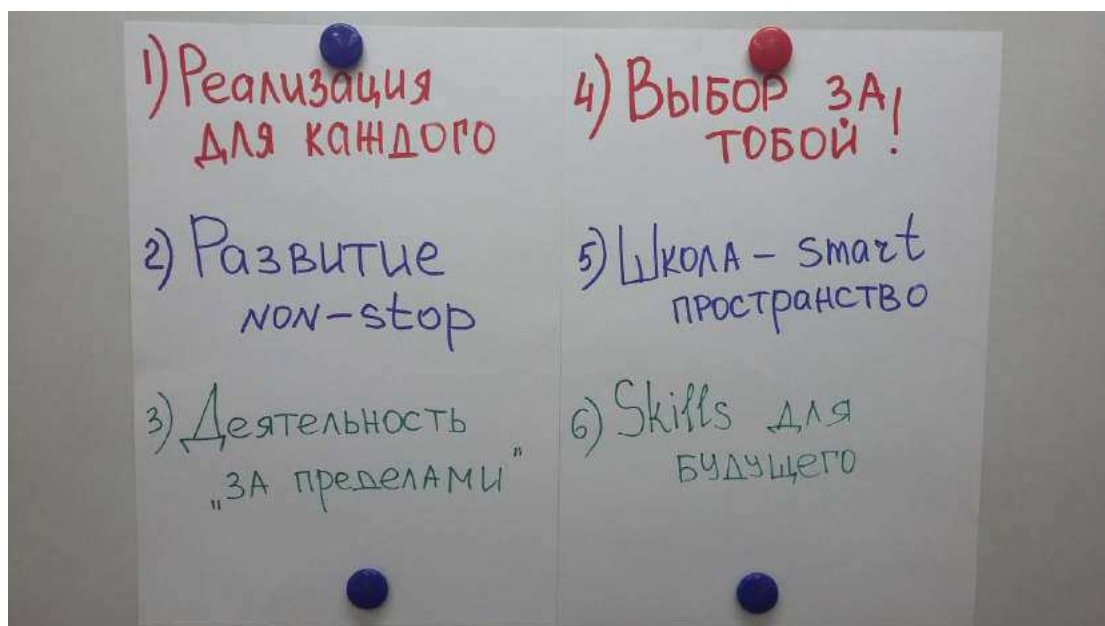 1) Реализация
для каждого
2) Развитие
non-stop
3) Деятельность
„за пределами"
4) Выбор за
тобой!
5) Школа - smart
пространство
6) Skills для
будущего